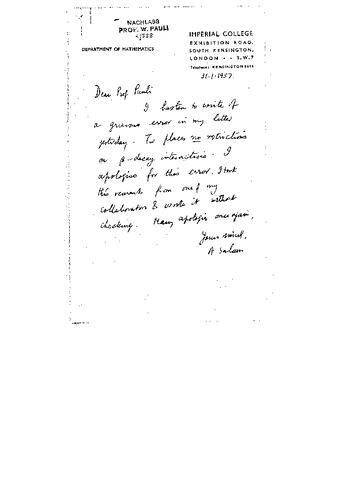 NACHLASS
PROF. W. PAULI
IMPERIAL COLLEGE
EXHIBITION ROAD,
SOUTH KENSINGTON,
LONDON - - S.W.7
DEPARTMENT OF MATHEMATICS
Telephone: KENSINGTON
31.1.1957.
Dear Prof Pauli
I hasten to write of
a grievous error in my letter
yesterday. places no restrictions
on β-decay interactions. I
apologise for this error. I took
this remark from one of my
collaborators & wrote it without
checking. Many apologies once again,
Yours sincerely,
A Salam